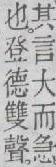 其言大而急
也登德雙聲